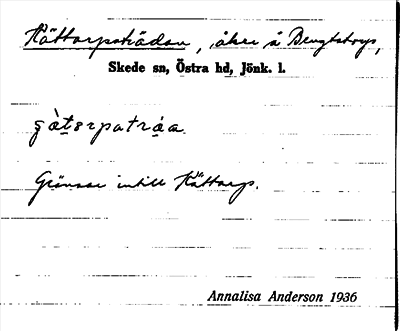 Kättorpaträdan, åker å Bengtstorp,
Skede sn, Östra hd, Jönk. l.
Gränsar intill Kättorp.
Annalisa Anderson 1936